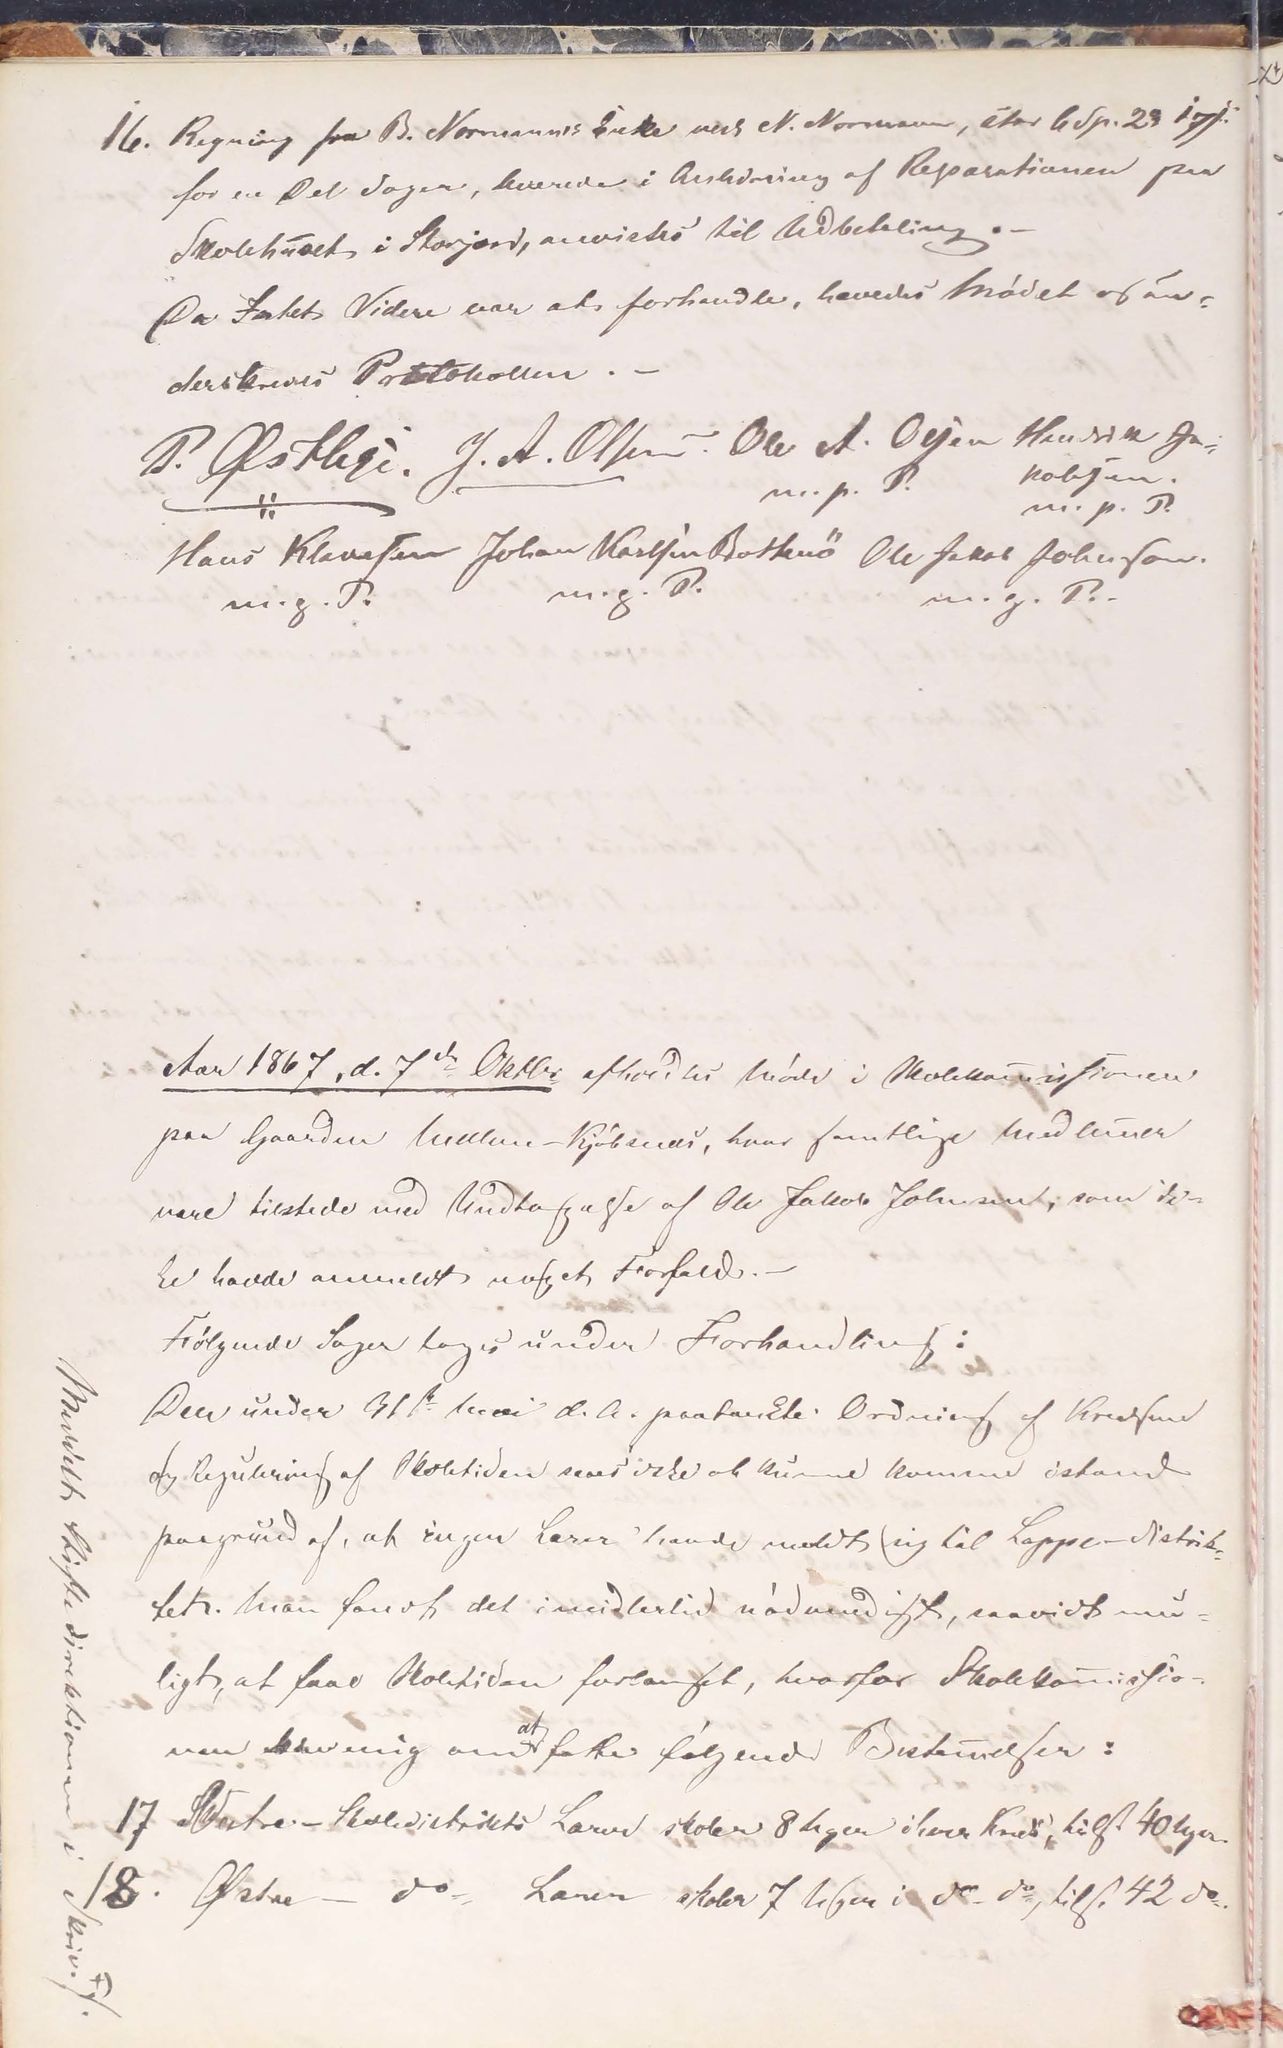 16. Regning fra B. Normanns Enke ved N. Normann, stor 6 Sp. 23
for en Del Sager, hvorede i Anledning af Reparationen paa
Skolehuset i Storjord, anvistes til Udbetaling. –
Da Intet Videre var at forhandle, hævedes Mødet og un-
derskreves Protokollen. –
P. Østhgi. J. A. Olsen. Ole A. Olsen Hendrik Ja-
kobsen.
m. p. P. m. p. P.
Hans Klausen Johan Karlsen Botnø Ole Jakob Johnsen.
m. p. P. m. p. P. m. p. P. –
Aar 1867, d. 7de Oktbr. afholdtes Møde i Skolekommissionen
paa Gaarden Mellem-Kjøbsnes, hvor samtlige Medlemmer
vare tilstede med Undtagelse af Ole Jakob Johnsen, som ik-
ke havde anmeldt noget Forfald. –
Følgende Sager toges under Forhandling:
Den under 31te Mai d. A. paatænkte Ordning af Kredsene
og Regulering af Skoletiden saaes ikke at kunne komme istand
paagrund af, at ingen Lærer havde meldt sig til Lappe-distrik-
tet. Man fandt det imidlertid nødvendigt, saavidt mu-
ligt, at faae Skoletiden forlænget, hvorfor Skolekommissio-
nen blev enig om at fatte følgende Bestemmelser:
17 Vestre – Skoledistrikts Lærer skoler 8 Uger i hver Kreds, tils. 40 Uger.
18. Østre – do – Lærer skoler 7 Uger i do – do, tils. 42 do.
Meldt Stiftsdirektionen i Skriv.